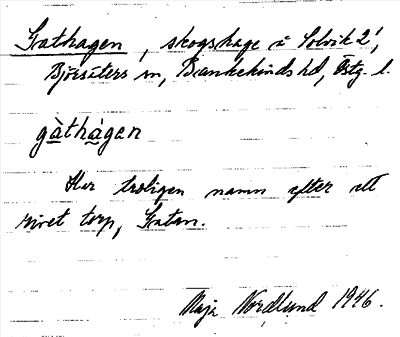 Gathagen, skogshage å Solvik 2¹,
Björsäters sn, Bankekinds hd, Östg. l.
gàthàgen
Har troligen namn efter ett
rivet torp, Gatan.
Maja Nordlund 1946.